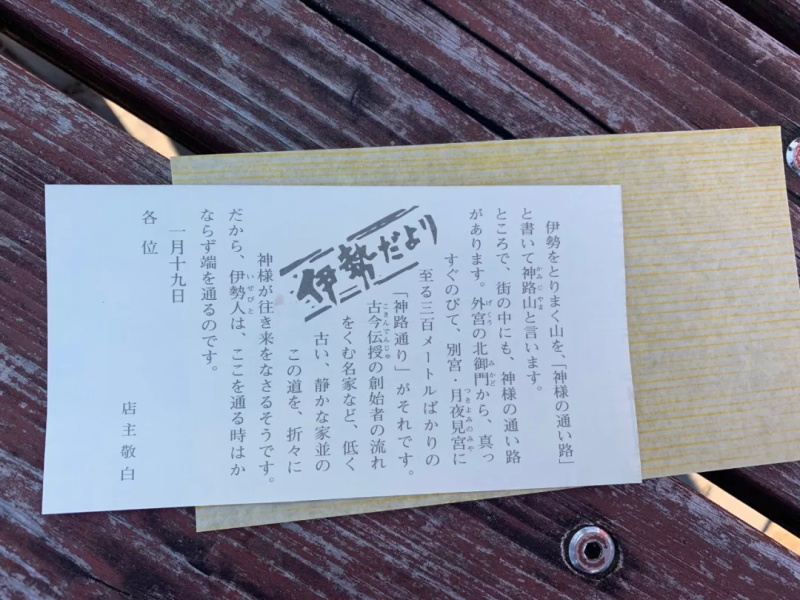 伊勢をとりまく山を、「神様の通い路」
と書いて神路山と言います。
ところで、街の中にも、神様の通い路
があります。外宮の北御門から、真っ
すぐのびて、別宮・月夜見宮に
至る三百メートルばかりの
「神路通り」がそれです。
古今伝授の創始者の流れ
をくむ名家など、低く
古い、静かな家並の
この道を、折々に
神様が往き来をなさるそうです。
だから、伊勢人は、ここを通る時はか
ならず端を通るのです。
一月十九日
各位
店主敬白
伊勢だより